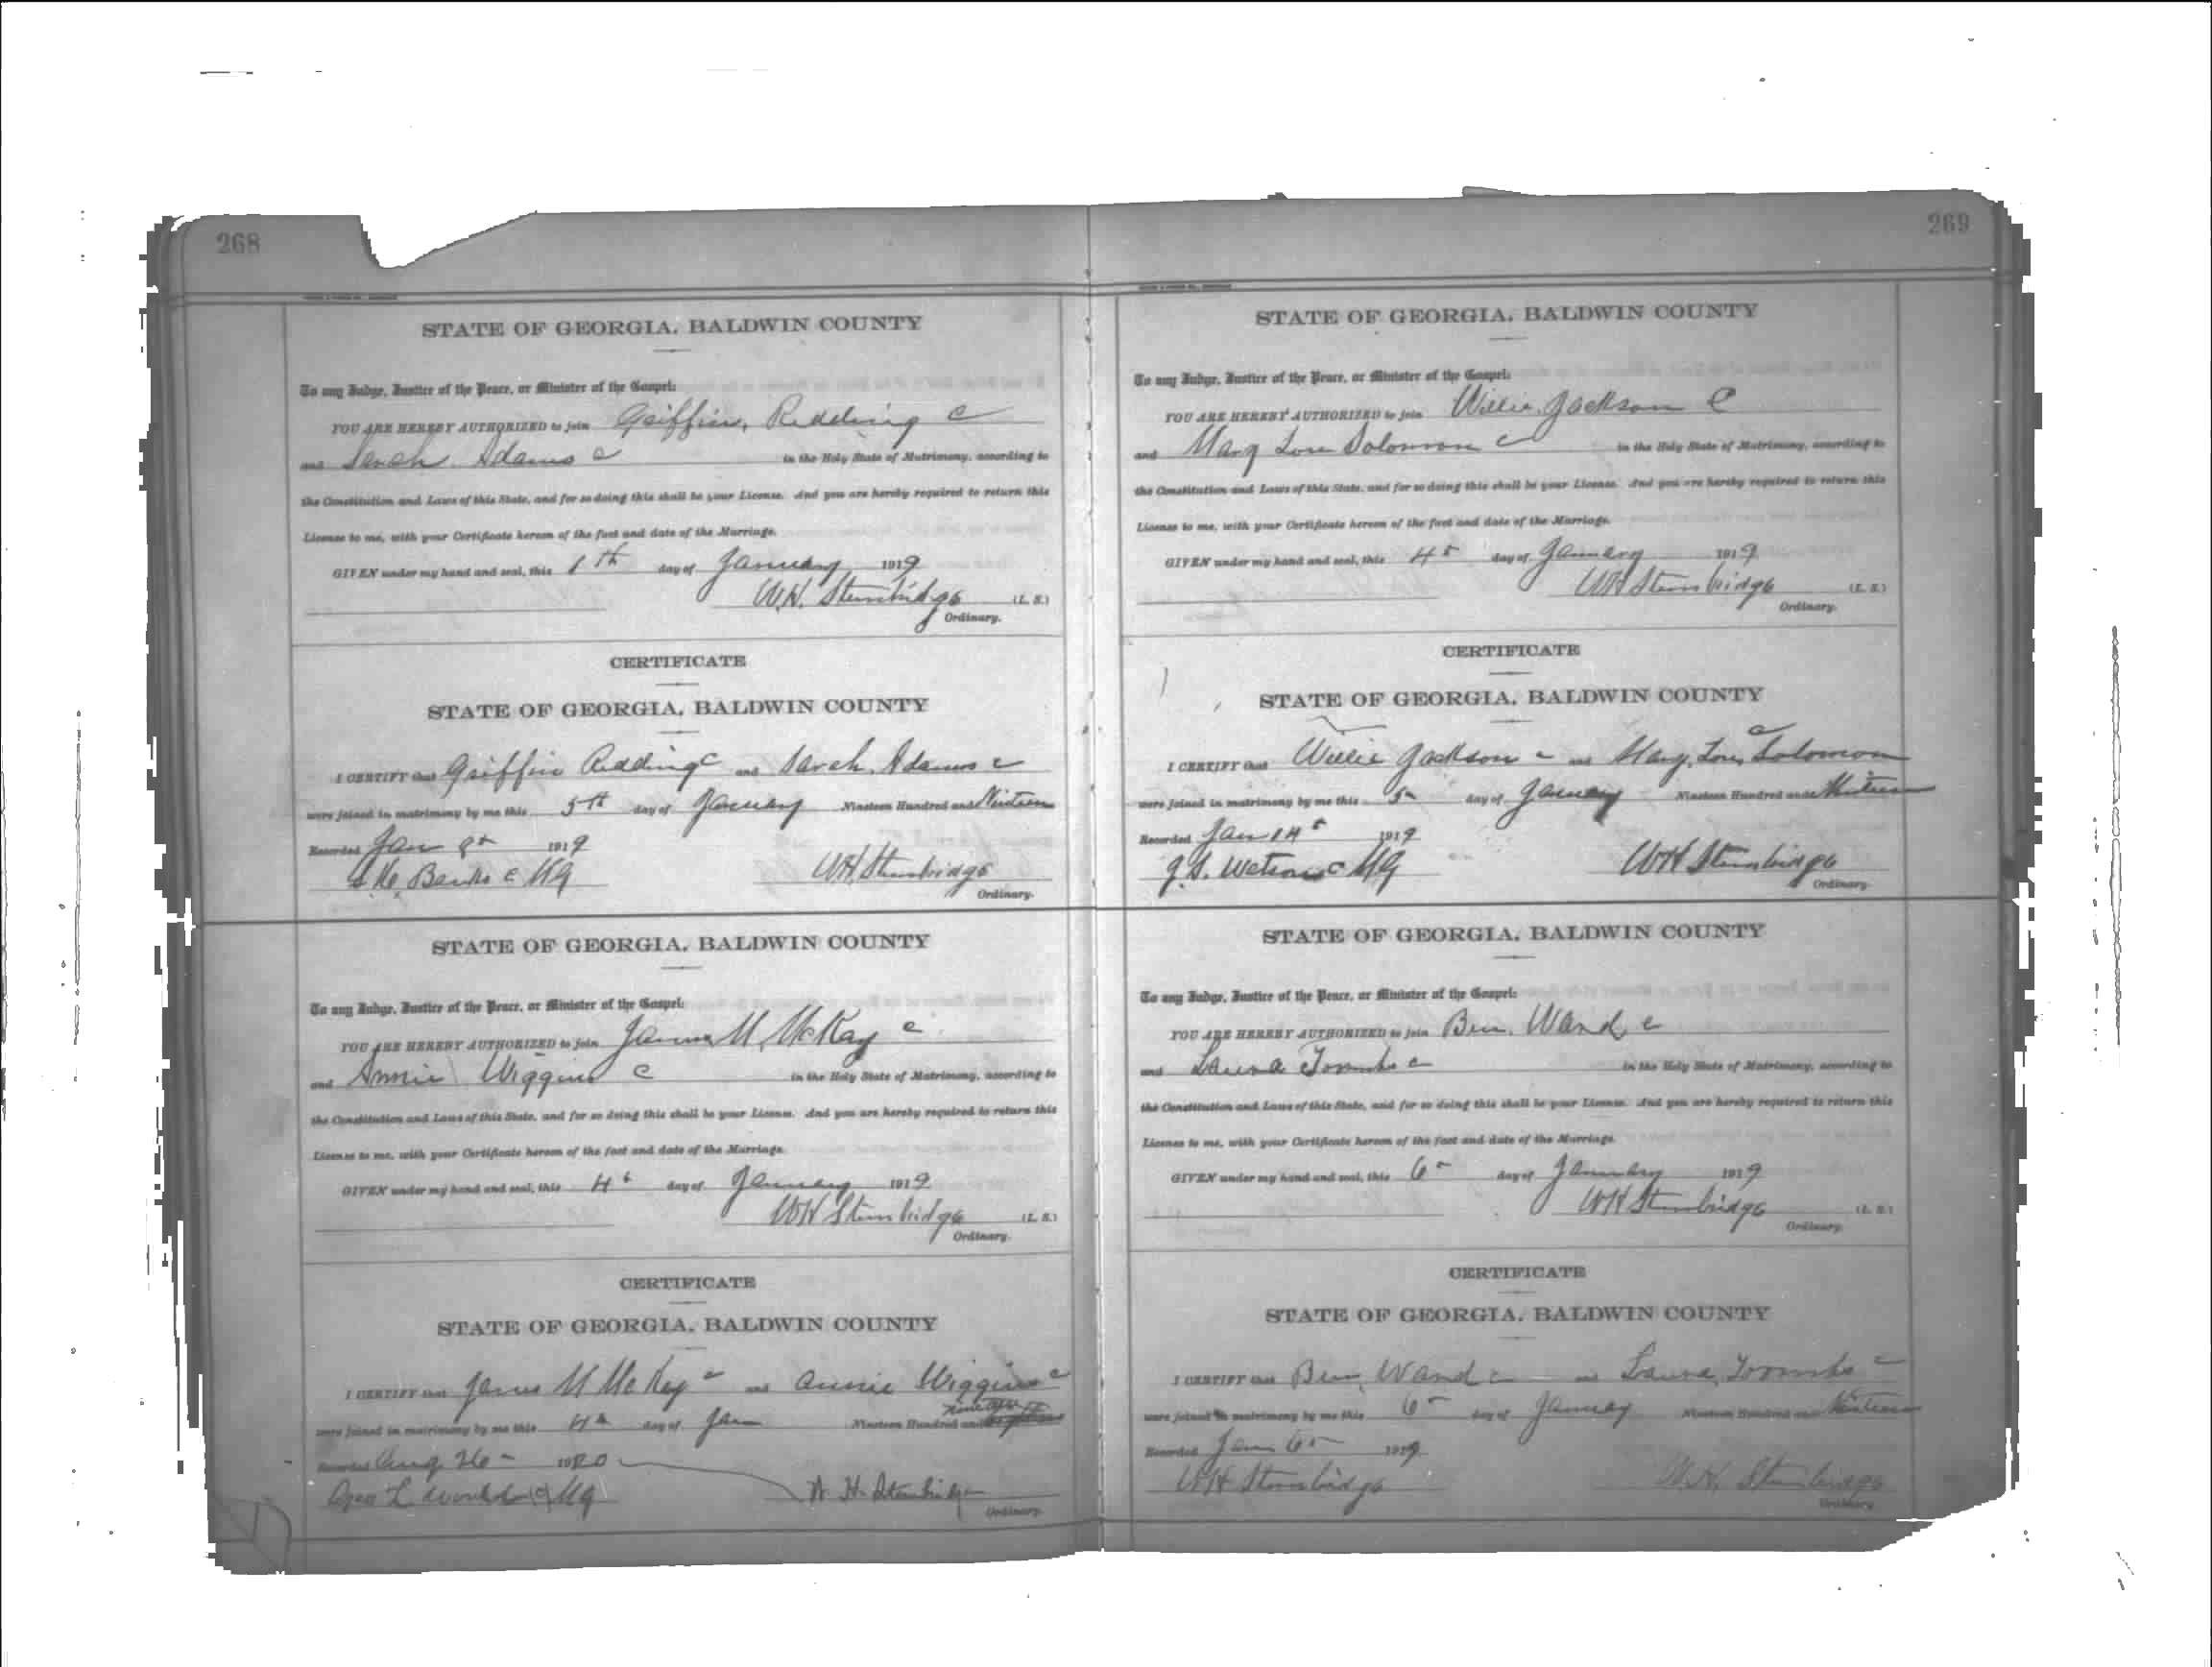 268
STATE OF GEORGIA, BALDWIN COUNTY
To any Judge, Justice of the Peace, or Minister of the Gospel:
YOU ARE HEREBY AUTHORIZED to join Griffin Redding c
and Sarah Adams c in the Holy State of Matrimony, according to
the Constitution and Laws of this State, and for so doing this shall be your License. And you are hereby required to return this
License to me, with your Certificate hereon of the fact and date of the Marriage.
GIVEN under my hand and seal, this 1th day of January 1919
W.H. Stembridge (L. S.)
Ordinary.
CERTIFICATE
STATE OF GEORGIA, BALDWIN COUNTY
I CERTIFY that Griffin Redding c and Sarah Adams c
were joined in matrimony by me this 5th day of January Nineteen Hundred and Nineteen
Recorded Jan 1919
Banks c MG WH Stembridge
Ordinary.
STATE OF GEORGIA, BALDWIN COUNTY
To any Judge, Justice of the Peace, or Minister of the Gospel:
YOU ARE HEREBY AUTHORIZED to join James M McKay c
and Annie Wiggins c in the Holy State of Matrimony, according to
the Constitution and Laws of this State, and for so doing this shall be your License. And you are hereby required to return this
License to me, with your Certificate hereon of the fact and date of the Marriage.
GIVEN under my hand and seal, this 4 day of January 1919
WH Stembridge (L. S.)
Ordinary.
CERTIFICATE
STATE OF GEORGIA, BALDWIN COUNTY
I CERTIFY that James M McKay c and Annie Wiggins c
were joined in matrimony by me this 4th day of Jan Nineteen Hundred and
Recorded Aug 26 1920
Geo L MG W. H. Stembridge
Ordinary.
269
STATE OF GEORGIA, BALDWIN COUNTY
To any Judge, Justice of the Peace, or Minister of the Gospel:
YOU ARE HEREBY AUTHORIZED to join Willie Jackson C
and Mary Lou Solomon c in the Holy State of Matrimony, according to
the Constitution and Laws of this State, and for so doing this shall be your License. And you are hereby required to return this
License to me, with your Certificate hereon of the fact and date of the Marriage.
GIVEN under my hand and seal, this 4 day of January 1919
WH Stembridge (L. S.)
Ordinary.
CERTIFICATE
STATE OF GEORGIA, BALDWIN COUNTY
I CERTIFY that Willie Jackson c and Mary Lou Solomon c
were joined in matrimony by me this 5 day of January Nineteen Hundred and Nineteen
Recorded Jan 14 1919
J.S. Watson c MG WH Stembridge
Ordinary.
STATE OF GEORGIA, BALDWIN COUNTY
To any Judge, Justice of the Peace, or Minister of the Gospel:
YOU ARE HEREBY AUTHORIZED to join Ben Wand c
and Laura Toombs c in the Holy State of Matrimony, according to
the Constitution and Laws of this State, and for so doing this shall be your License. And you are hereby required to return this
License to me, with your Certificate hereon of the fact and date of the Marriage.
GIVEN under my hand and seal, this 6 day of January 1919
WH Stembridge (L. S.)
Ordinary.
CERTIFICATE
STATE OF GEORGIA, BALDWIN COUNTY
I CERTIFY that Ben Wand c and Laura Toombs c
were joined in matrimony by me this 6 day of January Nineteen Hundred and Nineteen
Recorded Jan 6 1919
WH Stembridge W.H. Stembridge
Ordinary